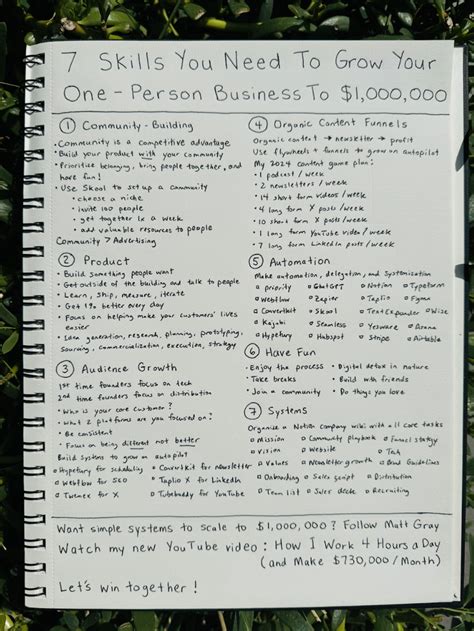 7 Skills You Need To Grow Your
One-Person Business To $1,000,000
① Community-Building
• Community is a competitive advantage
• Build your product with your community
• Prioritize belonging, bring people together, and
have fun!
• Use Skool to set up a community
• choose a niche
• invite 100 people
• get together 1x a week
• add valuable resources to people
Community > Advertising
② Product
• Build something people want
• Get outside of the building and talk to people
• Learn, ship, measure, iterate
• Get 1% better every day
• Focus on helping make your customers' lives
easier
• Idea generation, research, planning, prototyping,
sourcing, commercialization, execution, strategy
③ Audience Growth
1st time founders focus on tech
2nd time founders focus on distribution
• Who is your core customer?
• What 2 platforms are you focused on?
• Be consistent
• Focus on being different not better
Build systems to grow on autopilot
□ Hypefury for scheduling □ ConvertKit for newsletter
□ Webflow for SEO □ Taplio X for LinkedIn
□ Twemex for X □ Tubebuddy for YouTube
④ Organic Content Funnels
Organic content → newsletter → profit
Use flywheels + funnels to grow on autopilot
My 2024 content game plan:
• 1 podcast / week
• 2 newsletters / week
• 14 short form videos / week
• 4 long form X posts / week
• 10 short form X posts / week
• 1 long form YouTube video / week
• 7 long form LinkedIn posts / week
⑤ Automation
Make automation, delegation, and systemization
a priority □ ChatGPT □ Notion □ Typeform
□ Webflow □ Zapier □ Taplio □ Figma
□ ConvertKit □ Skool □ TextExpander □ Wise
□ Kajabi □ Seamless □ Yesware □ Asana
□ Hypefury □ Hubspot □ Stripe □ Airtable
⑥ Have Fun
• Enjoy the process • Digital detox in nature
• Take breaks • Build with friends
• Join a community • Do things you love
⑦ Systems
Organize a Notion company wiki with all core tasks
□ Mission □ Community playbook □ Funnel strategy
□ Vision □ Website □ Tech
□ Values □ Newsletter growth □ Brand Guidelines
□ Onboarding □ Sales script □ Distribution
□ Team list □ Sales deck □ Recruiting
Want simple systems to scale to $1,000,000? Follow Matt Gray
Watch my new YouTube video: How I Work 4 Hours a Day
(and Make $730,000/Month)
Let's win together!